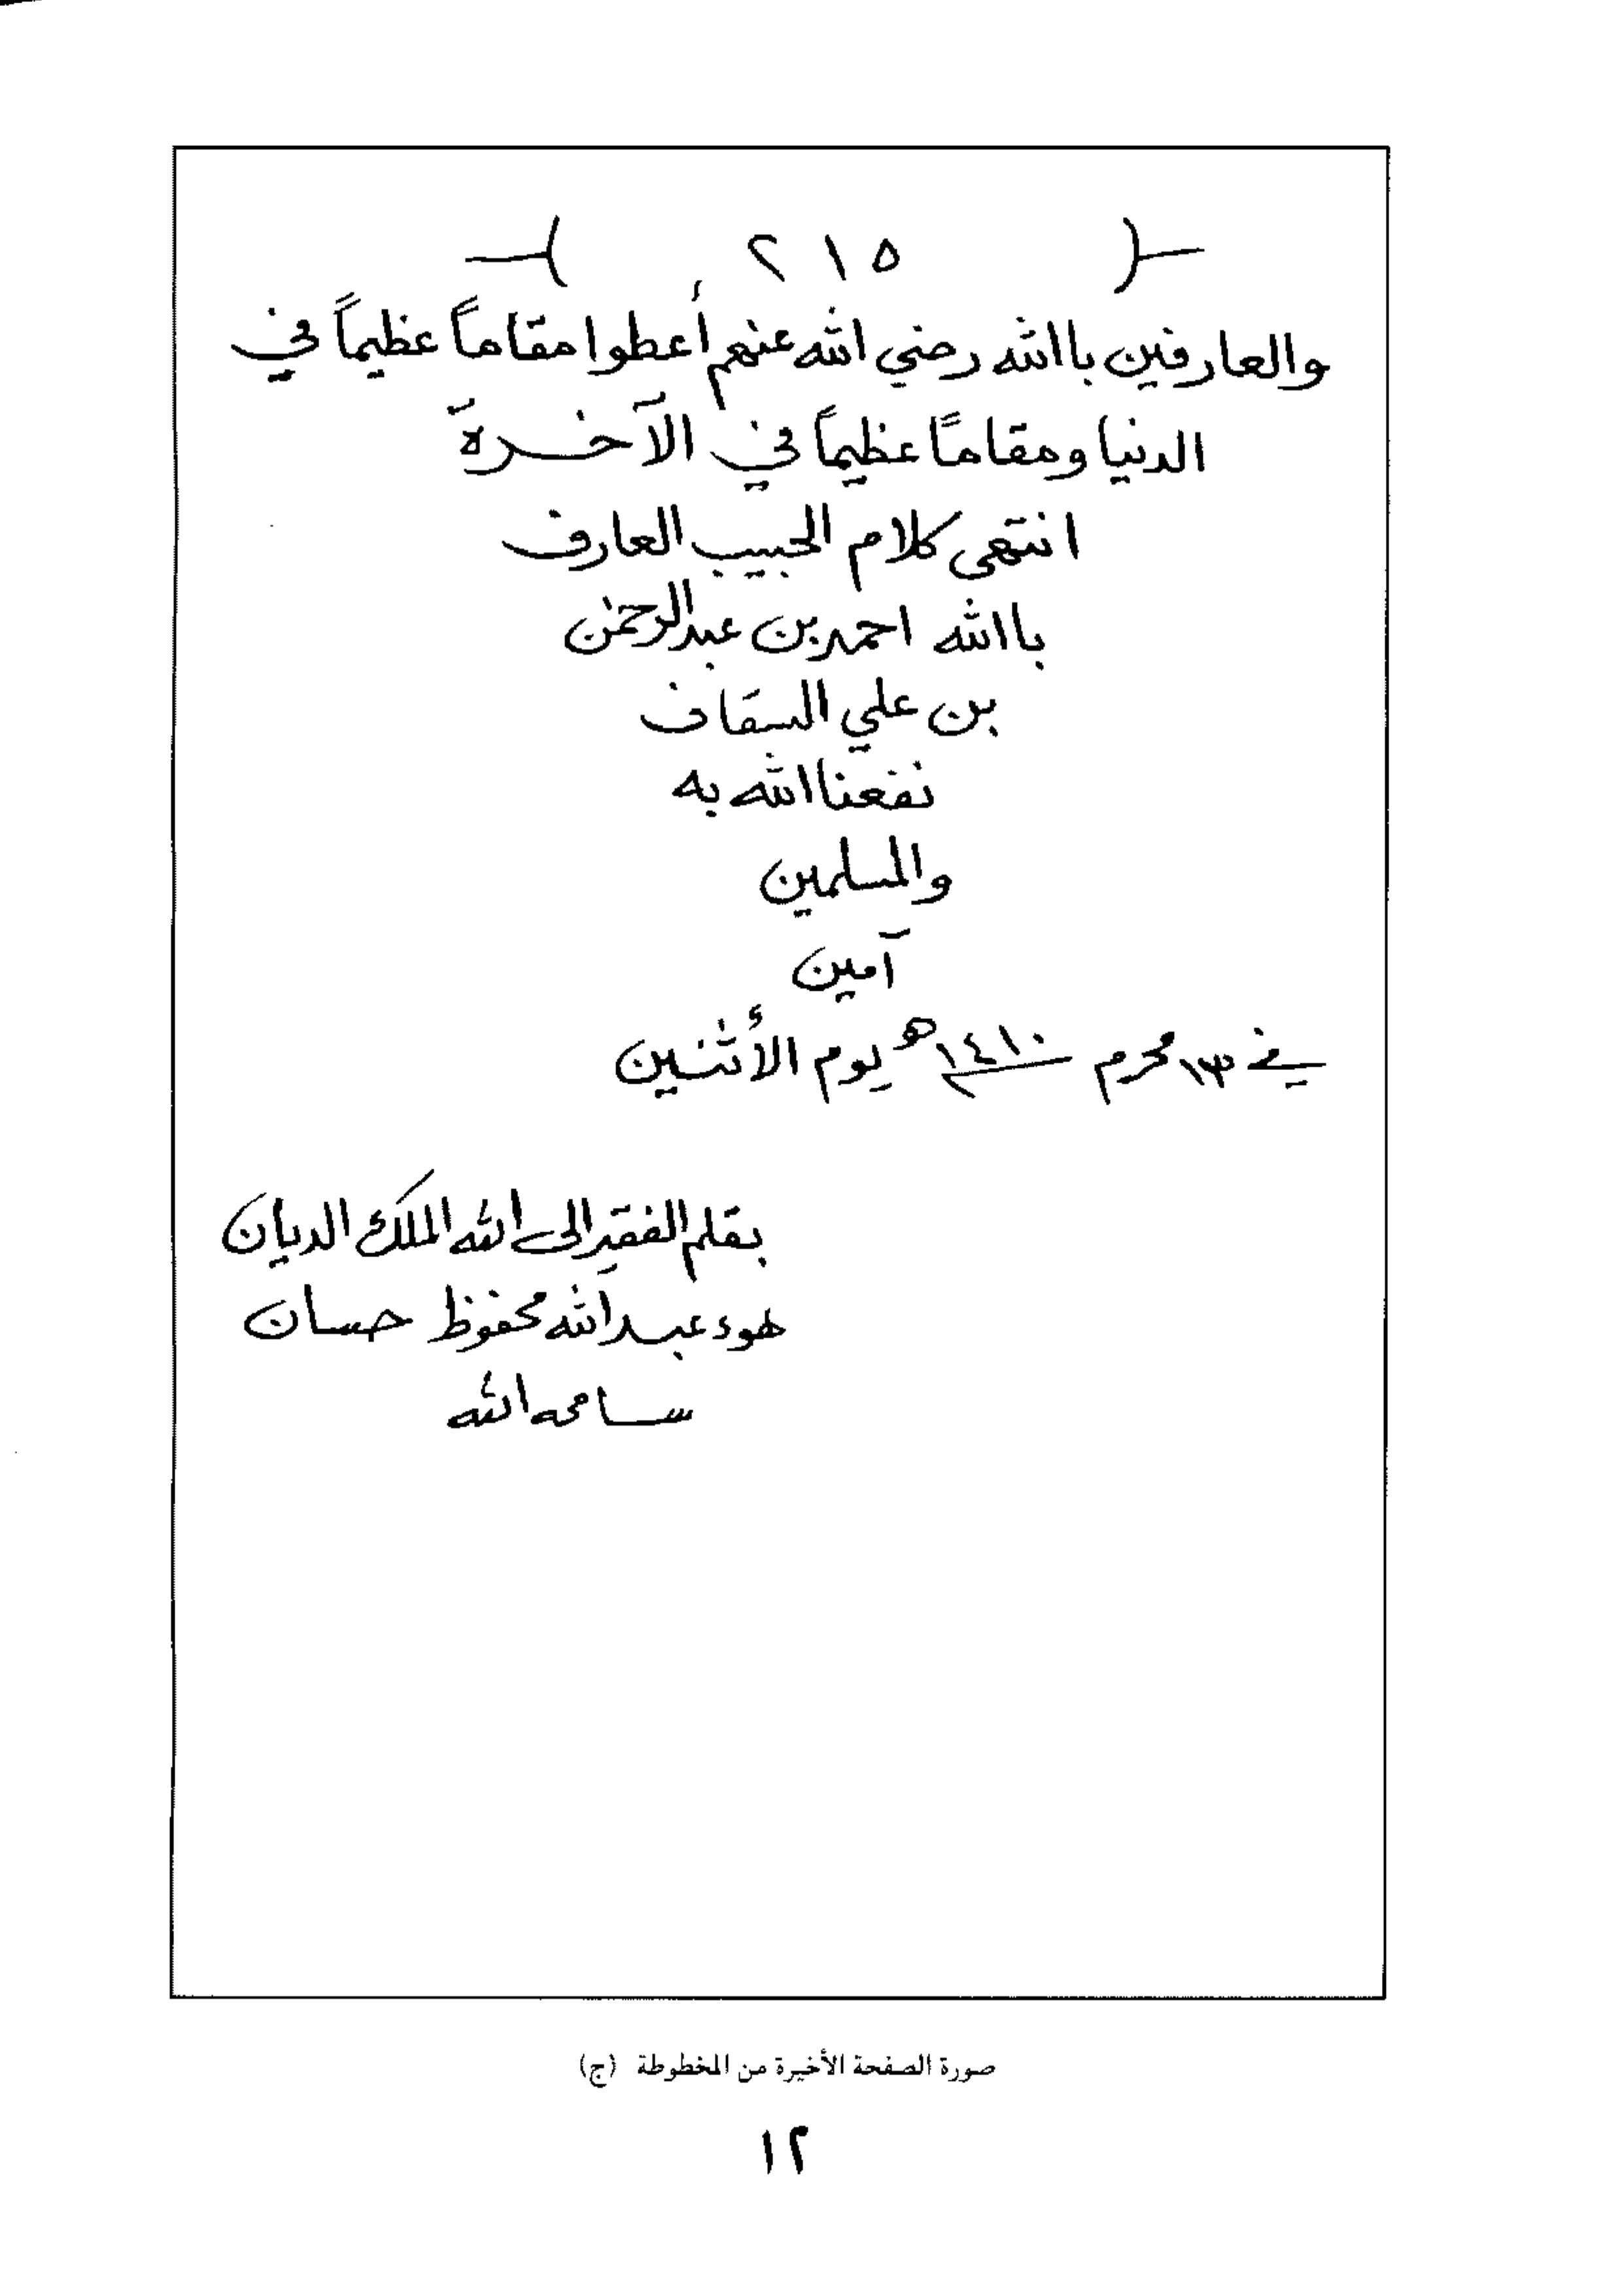 ( ٢١٥ )
والعارفين باالله رضي الله عنهم أعطوا مقاماً عظيماً في
الدنيا ومقاماً عظيماً في الآخرة
انتهى كلام الحبيب العارف
باالله احمد بن عبدالرحمن
بن علي السقاف
نفعنا الله به
والمسلمين
آمين
في محرم ١٤١٠هـ يوم الأثنين
بقلم الفقير إلى الله الملك الديان
هوء عبدالله محفوظ حسان
سامحه الله
صورة الصفحة الأخيرة من المخطوطة (ج)
١٢